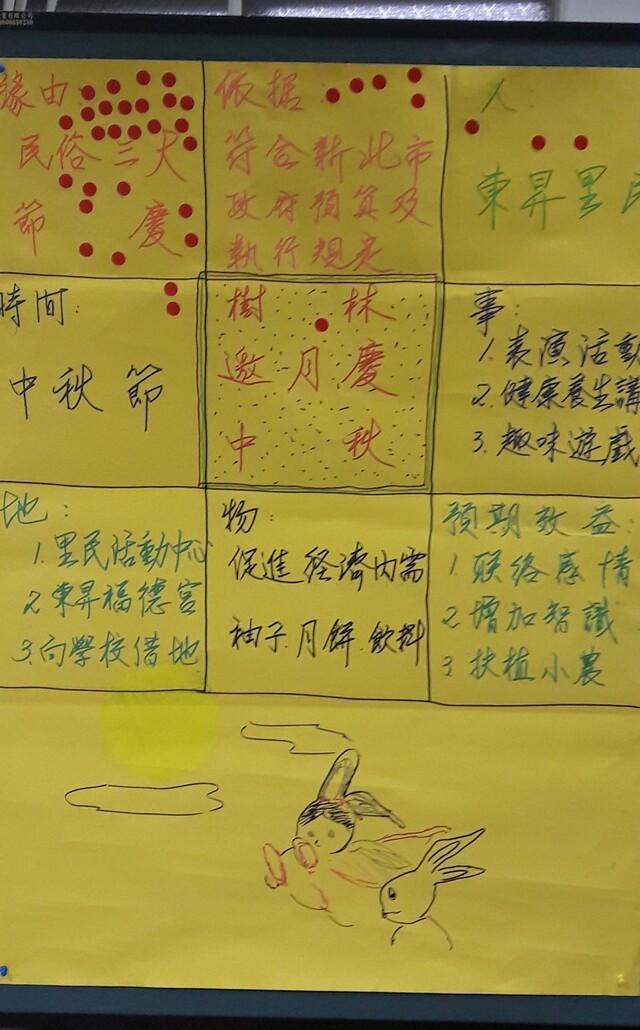 緣由:
民俗三大
節慶
依据:
符合新北市
政府預算及
執行規定
人:
東昇里民
時間:
中秋節
樹林
邀月慶
中秋
事:
1.表演活動
2.健康養生講
3.趣味遊戲
地:
1.里民活動中心
2.東昇福德宮
3.向學校借地
物:
促進經濟內需
柚子.月餅.飲料
預期效益:
1.联络感情
2.增加智識
3.扶植小農